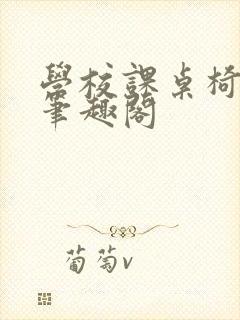 學校課桌椅
筆趣閣
葡萄v